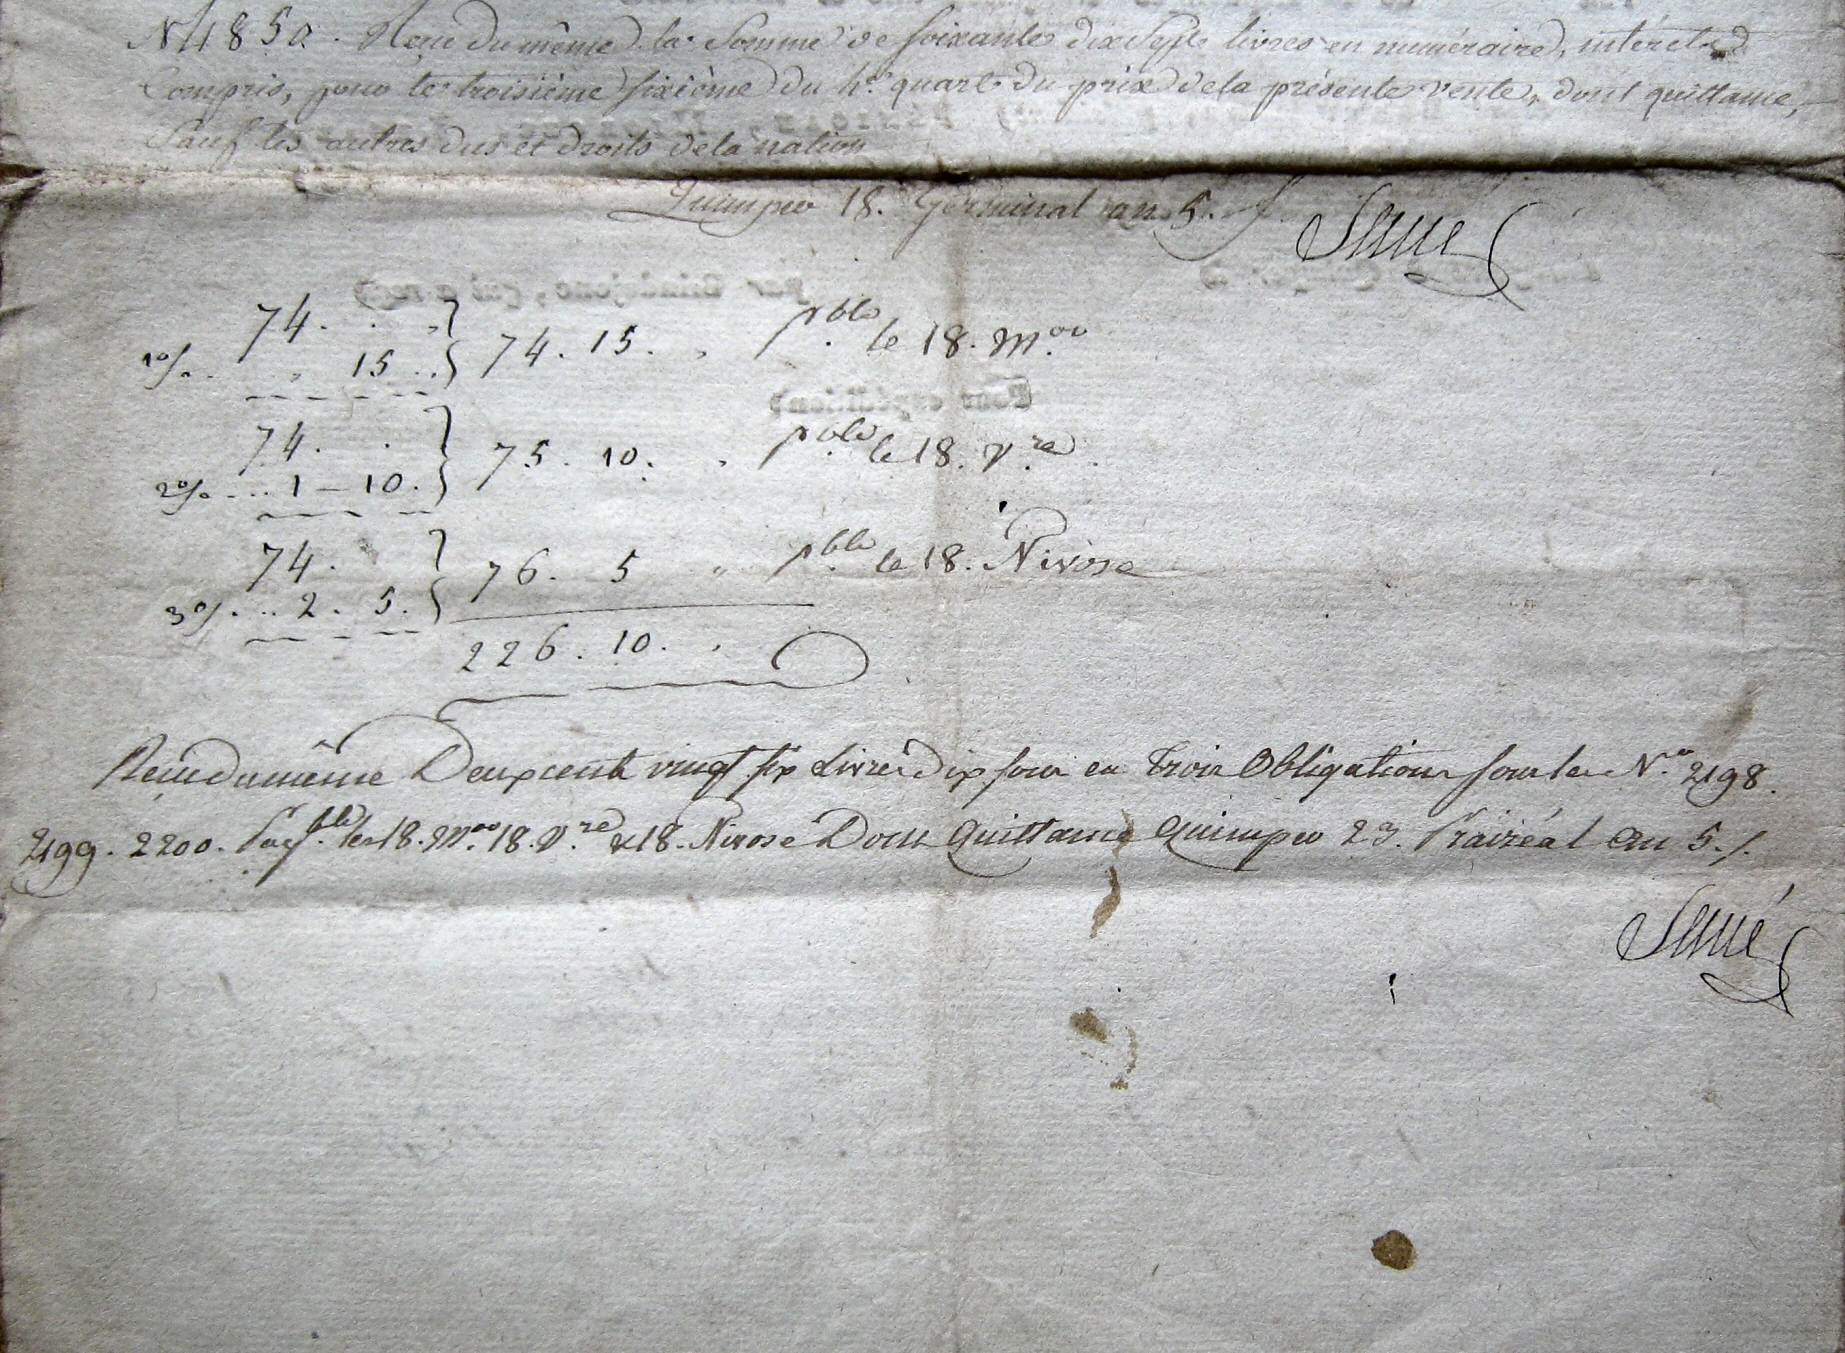 N 4850. Reçu du même la somme de soixante dix sept livres en numéraire, intérets
Compris, pour le troisième sixième du 4e. quart du prix de la présente vente, dont quittance,
Sauf les autres dus et droits de la nation
Quimper 18. Germinal an 5.
74. . .
1º/. . . 15 . . } 74. 15. . pble. le 18. M.or
74. .
2º/. . . 1 — 10. } 75. 10. . pble. le 18. V.re
74.
3º/. . . 2. 5. } 76. 5 " pble. le 18. Nivose
226. 10. .
Reçu du même Deux cent vingt six Livres dix sous en Trois Obligations sous les Nos. 2198.
2199. 2200. Payble. les 18. M.or 18. V.re & 18. Nivose Dont Quittance Quimper 23. Prairéal an 5./.